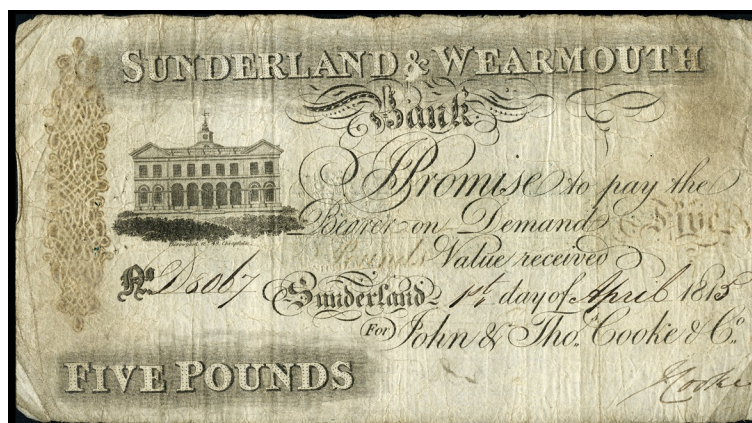 SUNDERLAND & WEARMOUTH
Bank
I Promise to pay the
Bearer on Demand Five
Pounds Value received
No. D8067 Sunderland 1st day of April 1815
For John & Thos. Cooke & Co.
FIVE POUNDS
J Cooke